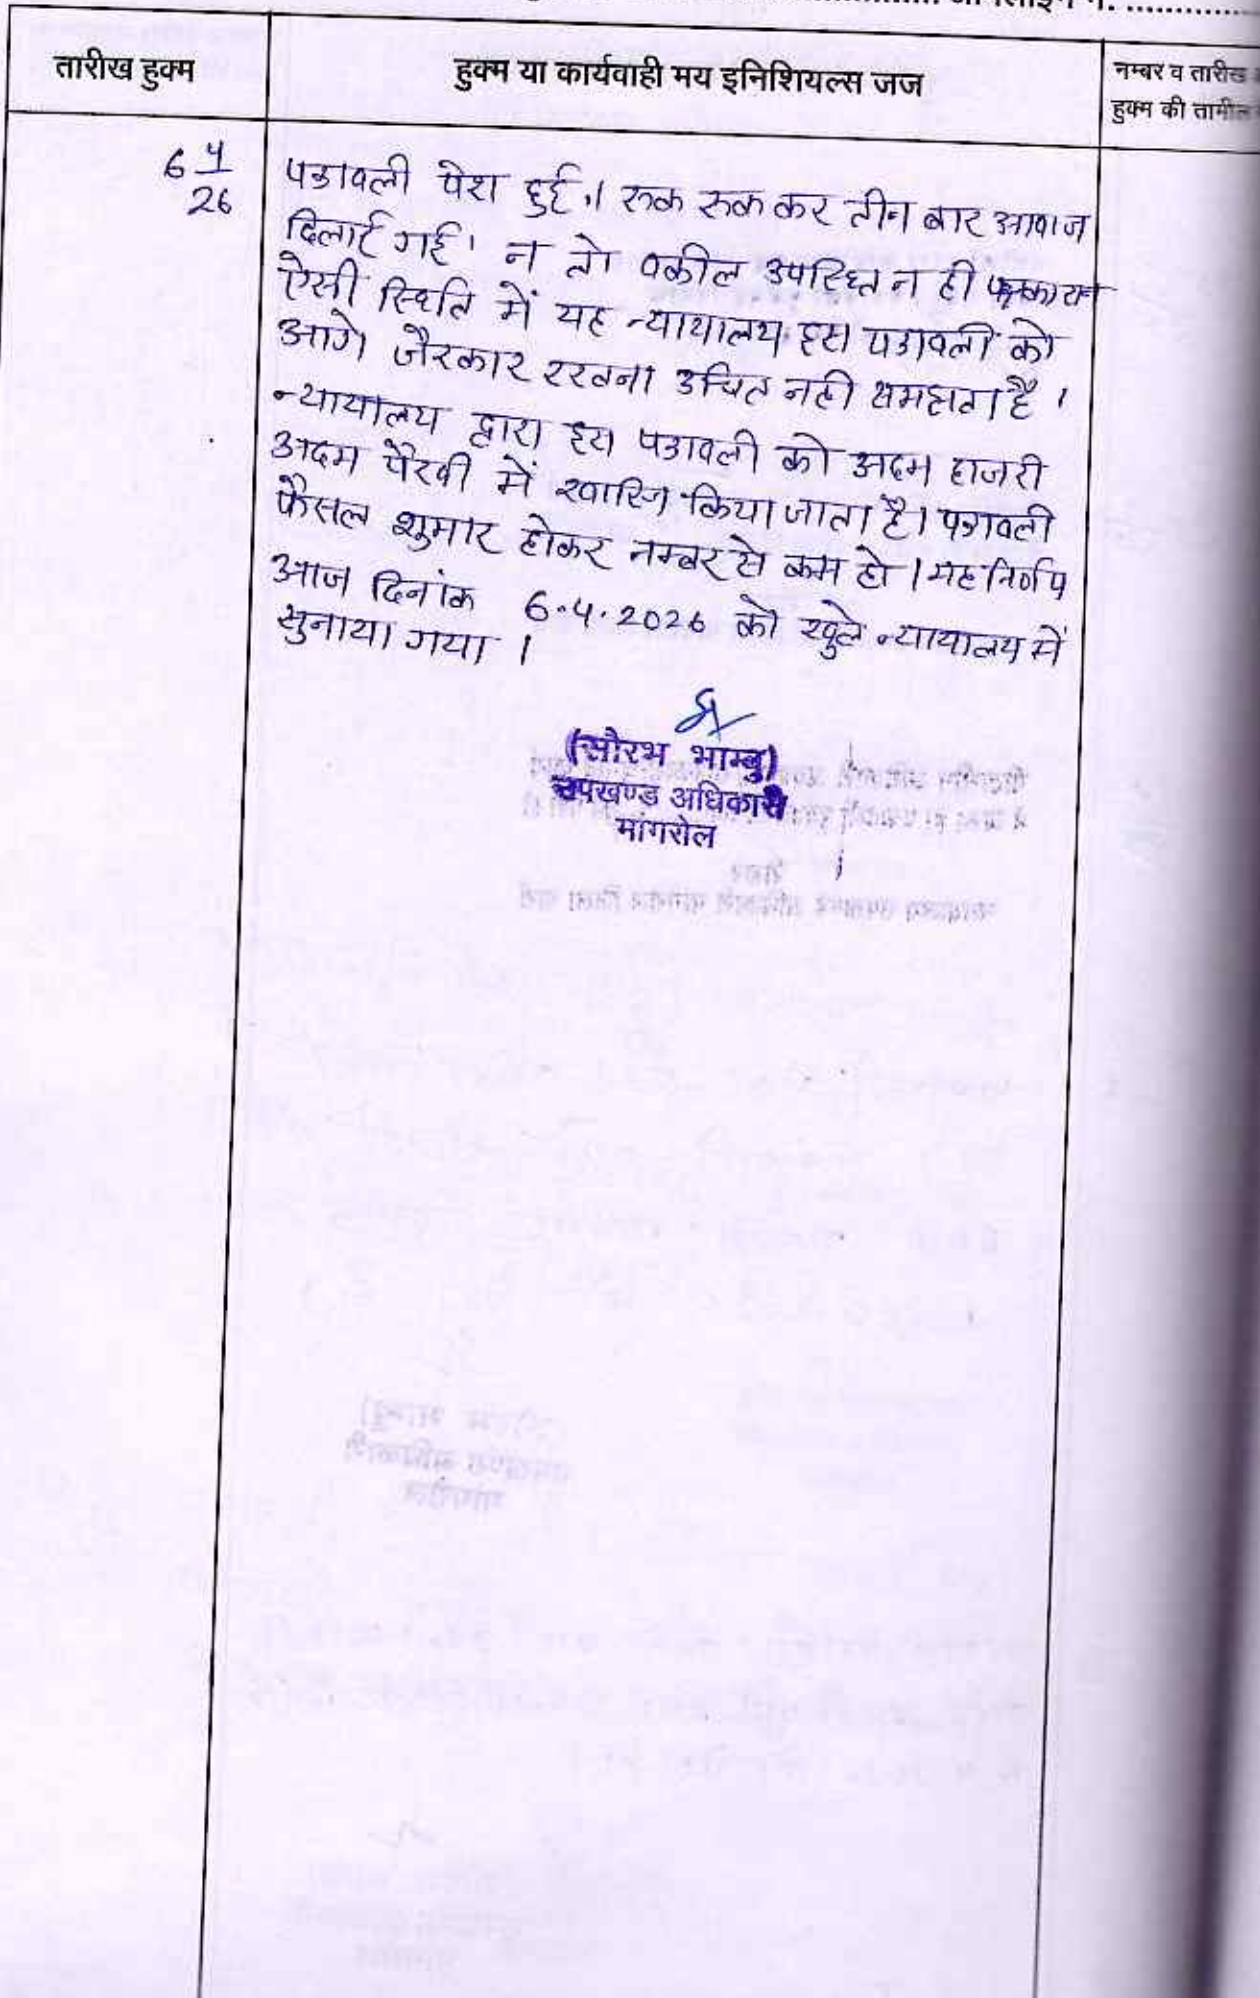 तारीख हुक्म
हुक्म या कार्यवाही मय इनिशियल्स जज
नम्बर व तारीख
हुक्म की तामील
6 4/26
पत्रावली पेश हुई। रूक रूक कर तीन बार आवाज
दिलाई गई। न तो वकील उपस्थित न ही पक्षकारान
ऐसी स्थिति में यह न्यायालय इस पत्रावली को
आगे जैरकार रखना उचित नही समझता है।
न्यायालय द्वारा इस पत्रावली को अदम हाजरी
अदम पैरवी में खारिज किया जाता है। पत्रावली
फैसल शुमार होकर नम्बर से कम हो। यह निर्णय
आज दिनांक 6.4.2026 को खुले न्यायालय में
सुनाया गया।
(सौरभ भाम्बु)
उपखण्ड अधिकारी
मांगरोल